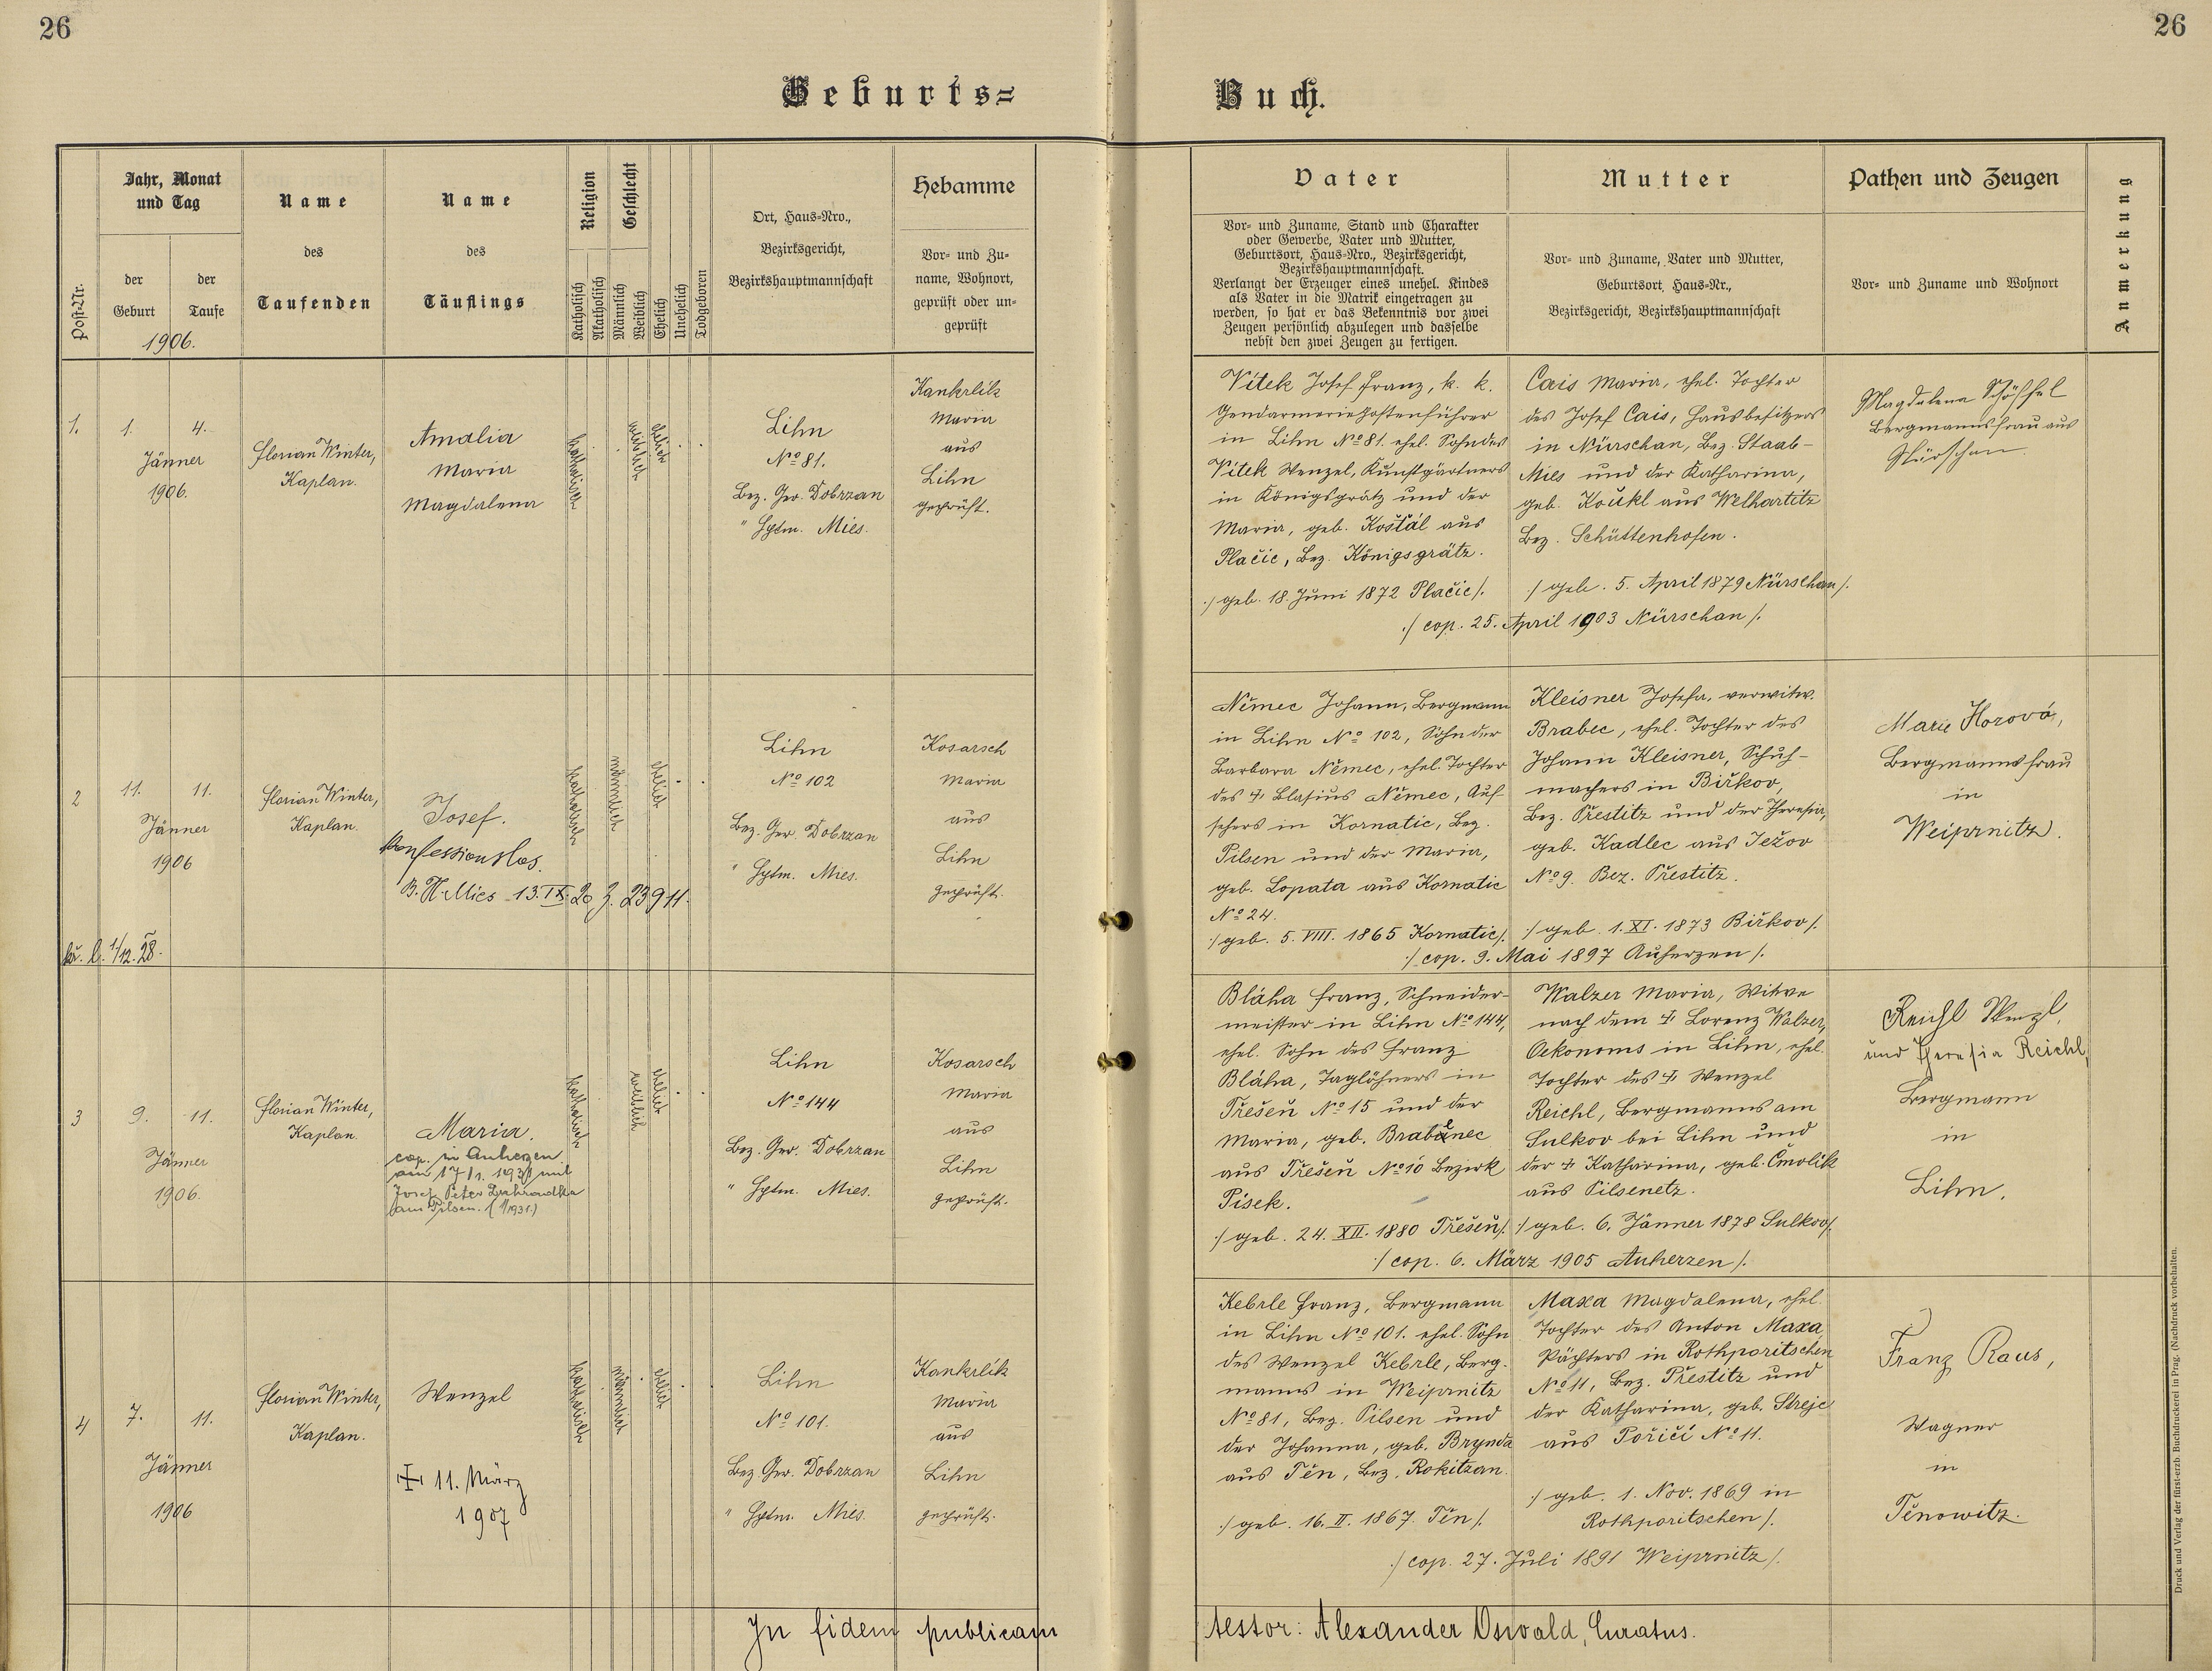 26
26
Geburts=
Buch.
Jahr, Monat
und Tag
Post-Nr.
der
Geburt
der
Taufe
1906.
Name
des
Taufenden
Name
des
Täuflings
Religion
Katholisch
Akatholisch
Geschlecht
Männlich
Weiblich
Ehelich
Unehelich
Todgeboren
Ort, Haus=Nro.,
Bezirksgericht,
Bezirkshauptmannschaft
Hebamme
Vor= und Zu=
name, Wohnort,
geprüft oder un=
geprüft
Vater
Vor= und Zuname, Stand und Charakter
oder Gewerbe, Vater und Mutter,
Geburtsort, Haus=Nro., Bezirksgericht,
Bezirkshauptmannschaft.
Verlangt der Erzeuger eines unehel. Kindes
als Vater in die Matrik eingetragen zu
werden, so hat er das Bekenntnis vor zwei
Zeugen persönlich abzulegen und dasselbe
nebst den zwei Zeugen zu fertigen.
Mutter
Vor= und Zuname, Vater und Mutter,
Geburtsort, Haus=Nr.,
Bezirksgericht, Bezirkshauptmannschaft
Pathen und Zeugen
Vor= und Zuname und Wohnort
Anmerkung
1.
1.
4.
Jänner
1906.
Florian Winter,
Kaplan.
Amalia
Maria
Magdalena
katholisch
weiblich
ehelich
Lihn
No 81.
Bez. Ger. Dobrzan
" Hptm. Mies.
Kankrlík
Maria
aus
Lihn
geprüft.
Vítek Josef Franz, k. k.
Gendarmeriepostenführer
in Lihn No 81. ehel. Sohn des
Vítek Wenzel, Kunstgärtners
in Königsgrätz und der
Maria, geb. Košťál aus
Plačic, Bez. Königsgrätz.
:/ geb. 18. Juni 1872 Plačic /:
Cais Maria, ehel. Tochter
des Josef Cais, Hausbesitzers
in Nürschan, Bez. Staab-
Mies und der Katharina,
geb. Koukl aus Welhartitz
Bez. Schüttenhofen.
:/ geb. 5. April 1879 Nürschan /:
:/ cop. 25. April 1903 Nürschan /:
Magdalena Schöffel
Bergmannsfrau aus
Nürschan
2
11.
11.
Jänner
1906
Florian Winter,
Kaplan.
Josef.
Konfessionslos.
B. H. Mies 13. IX. 20 Z. 23911.
1/12. 28.
katholisch
männlich
ehelich
Lihn
No 102
Bez. Ger. Dobrzan
" Hptm. Mies.
Kosarsch
Maria
aus
Lihn
geprüft.
Němec Johann, Bergmann
in Lihn No 102, Sohn der
Barbara Němec, ehel. Tochter
des ✝ Blasius Němec, Auf-
sehers in Kornatic, Bez.
Pilsen und der Maria,
geb. Lopata aus Kornatic
No 24.
:/ geb. 5. VIII. 1865 Kornatic /:
Kleisner Josefa, verwitw.
Brabec, ehel. Tochter des
Johann Kleisner, Schuh-
machers in Biřkov,
Bez. Přestitz und der Theresia,
geb. Kadlec aus Ježov
No 9. Bez. Přestitz.
:/ geb. 1. XI. 1873 Biřkov /:
:/ cop. 9. Mai 1897 Auherzen /:
Marie Horová,
Bergmannsfrau
in
Weiprnitz.
3
9.
11.
Jänner
1906.
Florian Winter,
Kaplan.
Maria.
cop. in Auherzen
am 17/1. 1931 mit
Josef Peter
aus Pilsen. (1/1931.)
katholisch
weiblich
ehelich
Lihn
No 144
Bez. Ger. Dobrzan
" Hptm. Mies.
Kosarsch
Maria
aus
Lihn
geprüft.
Bláha Franz, Schneider-
meister in Lihn No 144,
ehel. Sohn des Franz
Bláha, Taglöhners in
Třešeň No 15 und der
Maria, geb. Brabenec
aus Třešeň No 10 Bezirk
Pisek.
:/ geb. 24. XII. 1880 Třešeň /:
Walzer Maria, Witwe
nach dem ✝ Lorenz Walzer,
Oekonoms in Lihn, ehel.
Tochter des ✝ Wenzel
Reichl, Bergmanns am
Sulkov bei Lihn und
der ✝ Katharina, geb. Čmolík
aus Pilsenetz.
:/ geb. 6. Jänner 1878 Sulkov /:
:/ cop. 6. März 1905 Auherzen /:
Reichl Wenzl,
und Theresia Reichl,
Bergmann
in
Lihn.
4
7.
11.
Jänner
1906
Florian Winter,
Kaplan.
Wenzel
✝ 11. März
1907
katholisch
männlich
ehelich
Lihn
No 101.
Bez. Ger. Dobrzan
" Hptm. Mies.
Kankrlík
Maria
aus
Lihn
geprüft.
Kebrle Franz, Bergmann
in Lihn No 101. ehel. Sohn
des Wenzel Kebrle, Berg-
manns in Weiprnitz
No 81, Bez. Pilsen und
der Johanna, geb. Brynda
aus Těn, Bez. Rokitzan.
:/ geb. 16. II. 1867. Těn /:
Maxa Magdalena, ehel.
Tochter des Anton Maxa,
Pächters in Rothporitschen
No 11, Bez. Přestitz und
der Katharina, geb. Strejc
aus Poříčí No 11.
:/ geb. 1. Nov. 1869 in
Rothporitschen /:
:/ cop. 27. Juli 1891 Weiprnitz /:
Franz Raus,
Wagner
in
Těnowitz.
In fidem publicam
testor: Alexander Oswald, Curatus.
Druck und Verlag der fürst-erzb. Buchdruckerei in Prag. (Nachdruck vorbehalten.